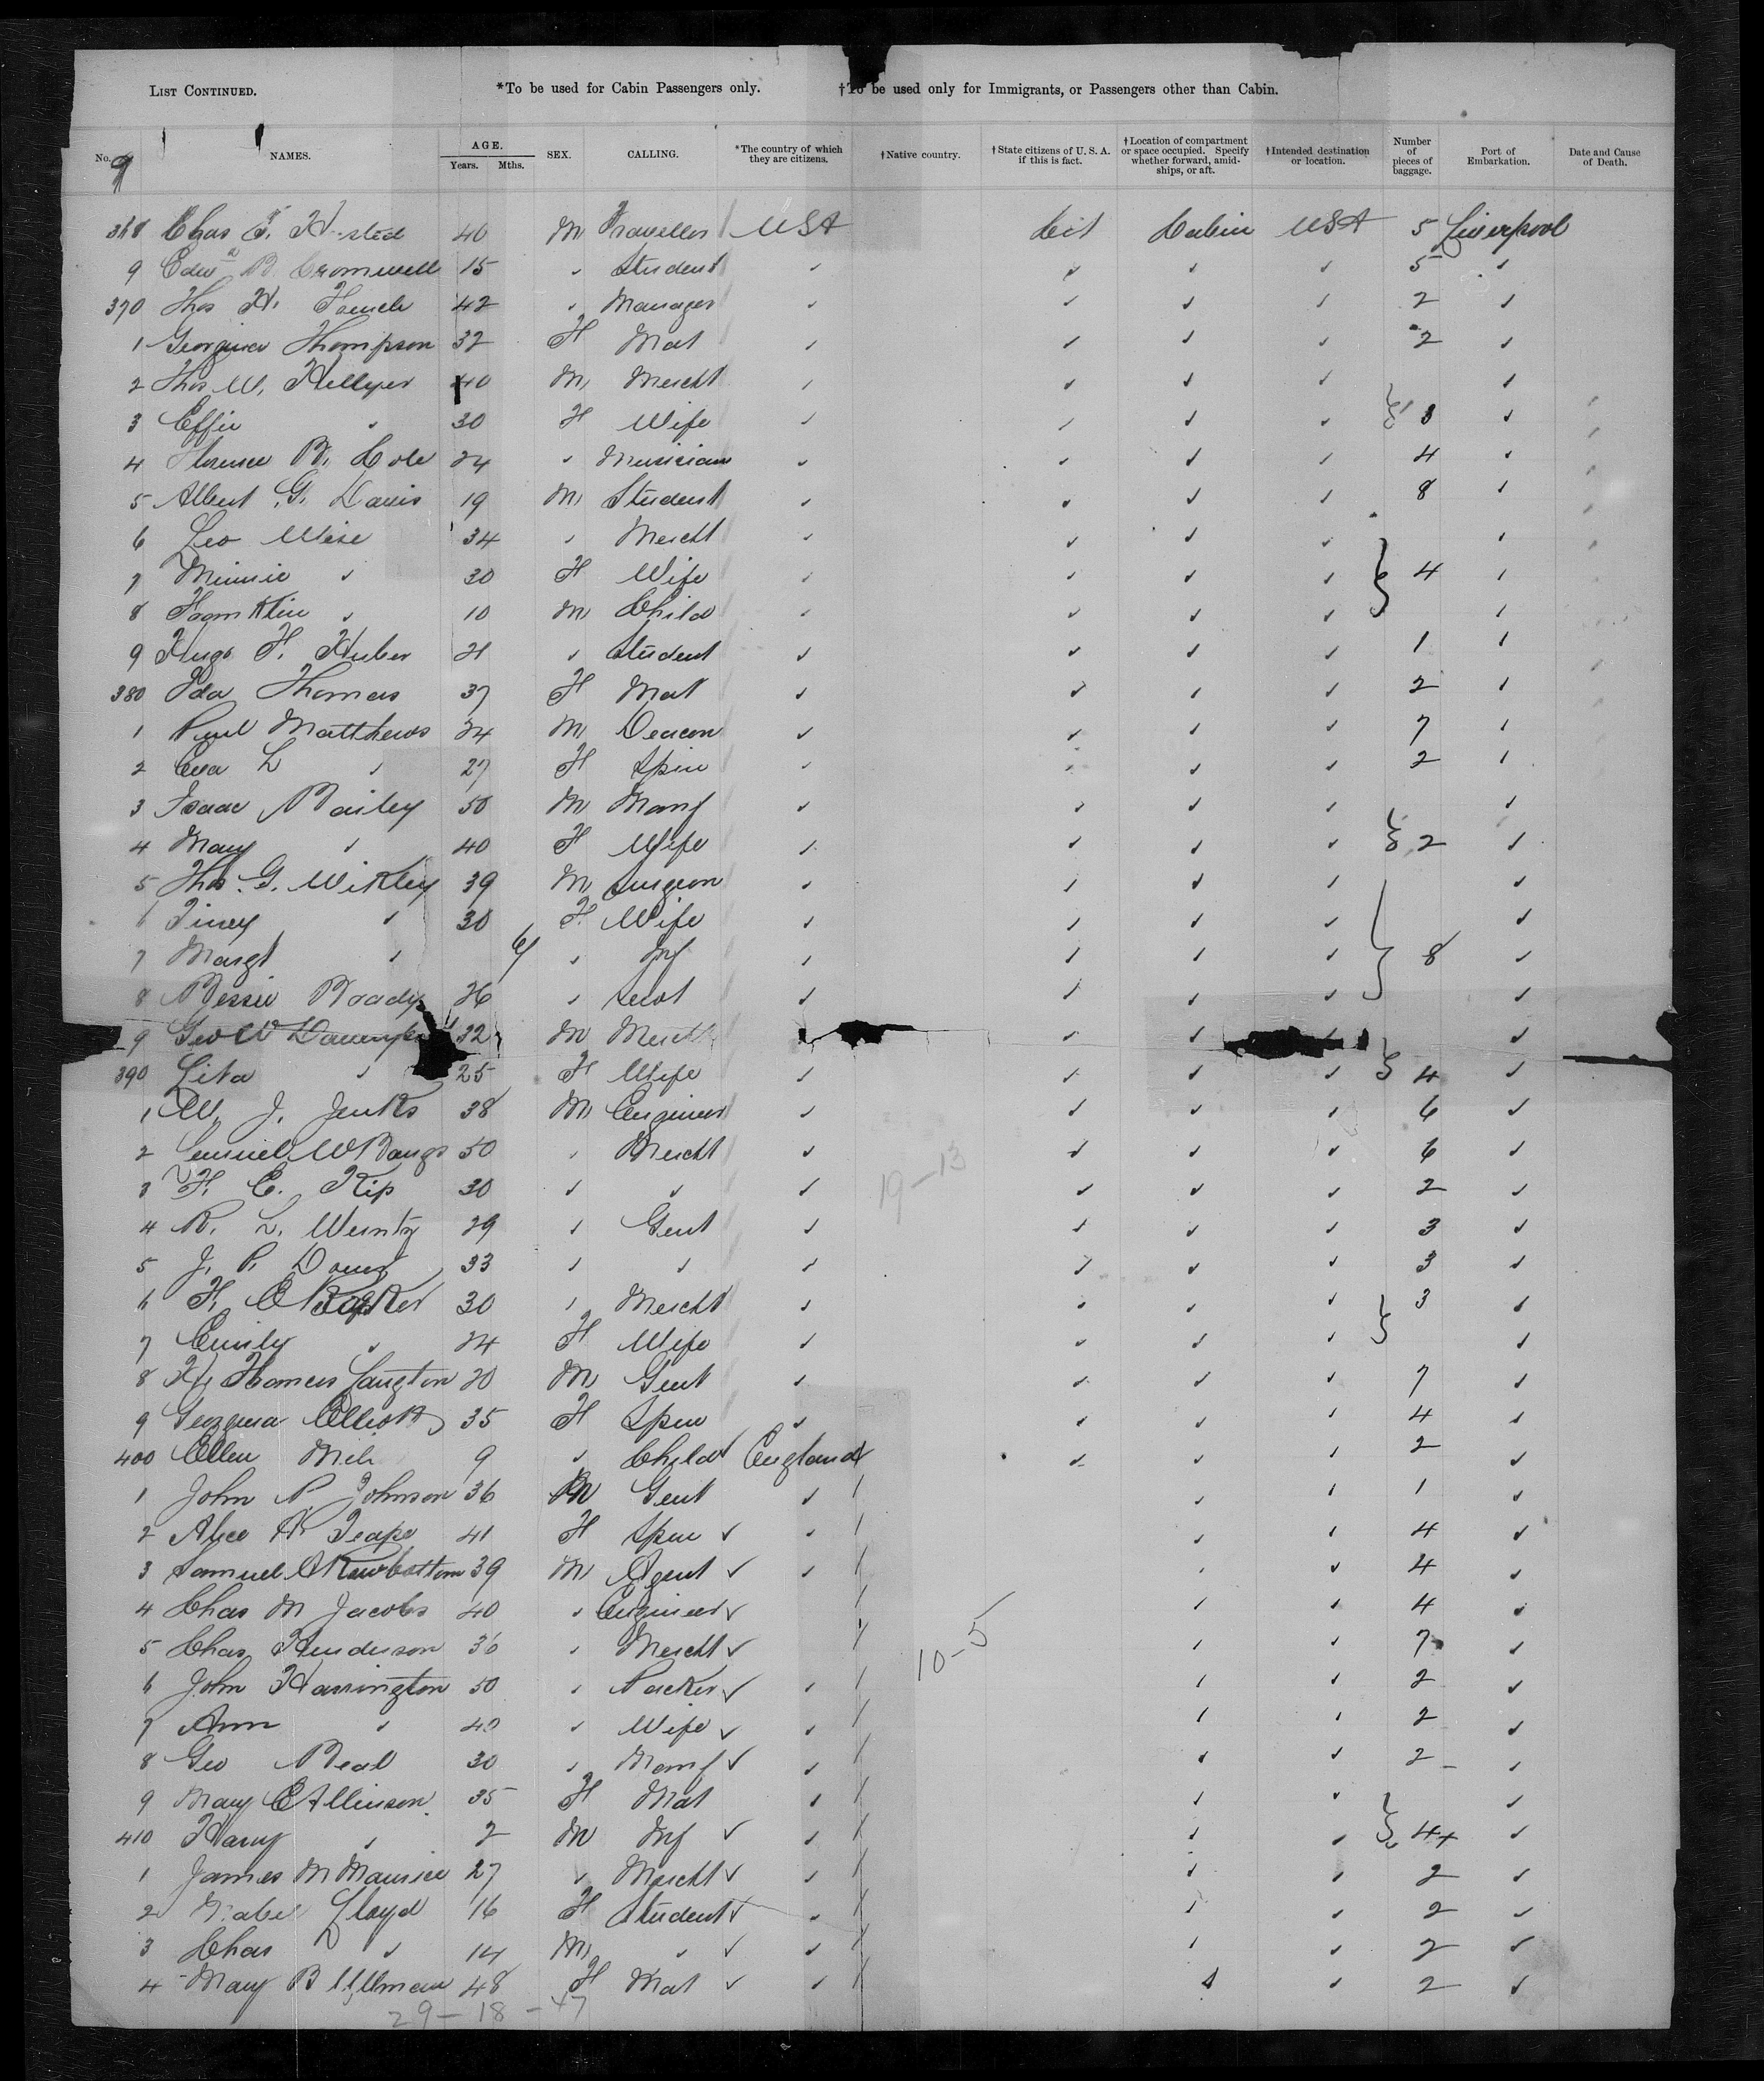 LIST CONTINUED. *To be used for Cabin Passengers only. †To be used only for Immigrants, or Passengers other than Cabin.
No. NAMES. AGE. Years. Mths. SEX. CALLING. *The country of which they are citizens. †Native country. †State citizens of U. S. A. if this is fact. †Location of compartment or space occupied. Specify whether forward, amidships, or aft. †Intended destination or location. Number of pieces of baggage. Port of Embarkation. Date and Cause of Death.
9
368 Chas F. 40 M Traveller USA Cit Cabin USA 5 Liverpool
9 Edwd B. Cromwell 15 ✓ Student ✓ ✓ ✓ ✓ 5 ✓
370 Thos H. 42 ✓ Manager ✓ ✓ ✓ ✓ 2 ✓
1 Georgina Thompson 32 F Mat ✓ ✓ ✓ ✓ 2 ✓
2 Thos W. Hellyer 40 M Mercht ✓ ✓ ✓ ✓ ✓
3 Effie ✓ 30 F Wife ✓ ✓ ✓ ✓ 3 ✓
4 Florence B. Cole 24 ✓ Musician ✓ ✓ ✓ ✓ 4 ✓
5 Albert G. Davis 19 M Student ✓ ✓ ✓ ✓ 8 ✓
6 Leo Wise 34 ✓ Mercht ✓ ✓ ✓ ✓ ✓
7 Minnie ✓ 30 F Wife ✓ ✓ ✓ ✓ 4 ✓
8 Franklin ✓ 10 M Child ✓ ✓ ✓ ✓ ✓
9 Hugo F. Huber 21 ✓ Student ✓ ✓ ✓ ✓ 1 ✓
380 Ida Thomas 37 F Mat ✓ ✓ ✓ ✓ 2 ✓
1 Paul Matthews 24 M Deacon ✓ ✓ ✓ ✓ 7 ✓
2 Eva L ✓ 27 F Spin ✓ ✓ ✓ ✓ 2 ✓
3 Isaac Bailey 50 M Manf ✓ ✓ ✓ ✓ ✓
4 Mary ✓ 40 F Wife ✓ ✓ ✓ ✓ 2 ✓
5 Thos. G. Wikley 39 M Surgeon ✓ ✓ ✓ ✓
6 ✓ 30 F Wife ✓ ✓ ✓ ✓
7 Margt ✓ ✓ Inf ✓ ✓ ✓ ✓ 8 ✓
8 Bessie Brady 26 ✓ Servt ✓ ✓ ✓ ✓ ✓
9 Geo W 32 M Mercht ✓ ✓ ✓ ✓
390 Lita ✓ 25 F Wife ✓ ✓ ✓ ✓ 4 ✓
1 W. J. Jenks 38 M Engineer ✓ ✓ ✓ ✓ 6 ✓
2 Lemuel W Bangs 50 ✓ Mercht ✓ ✓ ✓ ✓ 6 ✓
3 F. E. Kip 30 ✓ ✓ ✓ ✓ ✓ ✓ 2 ✓
19-13
4 R. L. Wentz 29 ✓ Gent ✓ ✓ ✓ ✓ 3 ✓
5 J. P. 33 ✓ ✓ ✓ ✓ ✓ ✓ 3 ✓
6 F. C 30 ✓ Mercht ✓ ✓ ✓ ✓ 3 ✓
7 Emily ✓ 24 F Wife ✓ ✓ ✓ ✓ ✓
8 Thomas Langton 20 M Gent ✓ ✓ ✓ ✓ 7 ✓
9 Georgina Elliott 35 F Spin ✓ ✓ ✓ ✓ 4 ✓
400 Ellen 9 ✓ Child England ✓ ✓ ✓ 2 ✓
1 John P. Johnson 36 M Gent ✓ ✓ ✓ 1 ✓
2 Alice Teape 41 F Spin ✓ ✓ ✓ ✓ 4 ✓
3 Samuel A Rowbottom 39 M Agent ✓ ✓ ✓ ✓ 4 ✓
4 Chas M Jacobs 40 ✓ Engineer ✓ ✓ ✓ 4 ✓
5 Chas Henderson 36 ✓ Mercht ✓ ✓ ✓ 7 ✓
10-5
6 John Harrington 50 ✓ Packer ✓ ✓ ✓ ✓ 2 ✓
7 Ann ✓ 40 ✓ Wife ✓ ✓ ✓ ✓ 2 ✓
8 Geo Beal 30 ✓ Manf ✓ ✓ ✓ ✓ 2 ✓
9 Mary E Allinson 35 F Mat ✓ ✓ ✓ ✓
410 Harry ✓ 2 M Inf ✓ ✓ ✓ ✓ 4+ ✓
1 James M Maurice 27 ✓ Mercht ✓ ✓ ✓ ✓ 2 ✓
2 Mabel Lloyd 16 F Student ✓ ✓ ✓ ✓ 2 ✓
3 Chas ✓ 14 M ✓ ✓ ✓ ✓ ✓ 2 ✓
4 Mary B Ullman 48 F Mat ✓ ✓ ✓ ✓ 2 ✓
29-18-47